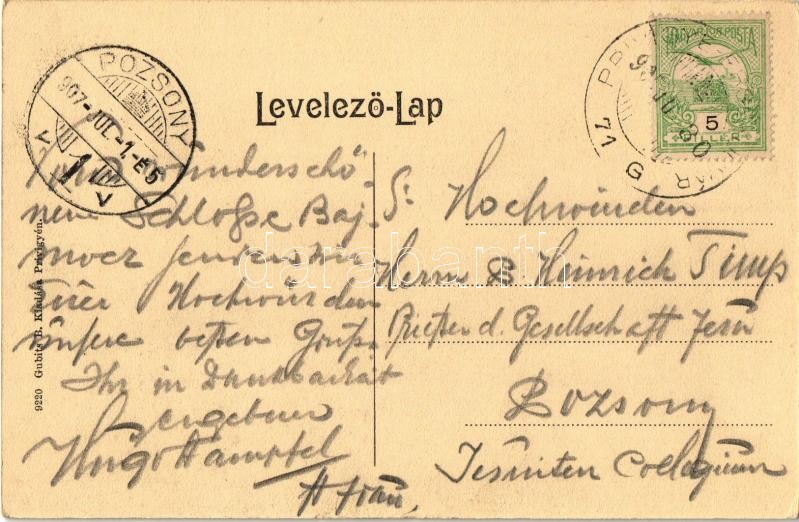 POZSONY
907-JUL.-1.-É5
Levelező-Lap
MAGYAR KIR. POSTA
5
FILLÉR
71
G
wunderschö
nen Schloße Baj
mocz senden
Hochwürden
unsere besten Grüße
Ihr in Dankbarkeit
ergebener
Hugo Hampfel
Frau
S. Hochwürden
Herrn P. Heinrich Timp
Priester d. Gesellschaft Jesu
Pozsony
Jesuiten Collegium
9220 Gubits B. Kiadása Privigyén
darabanth